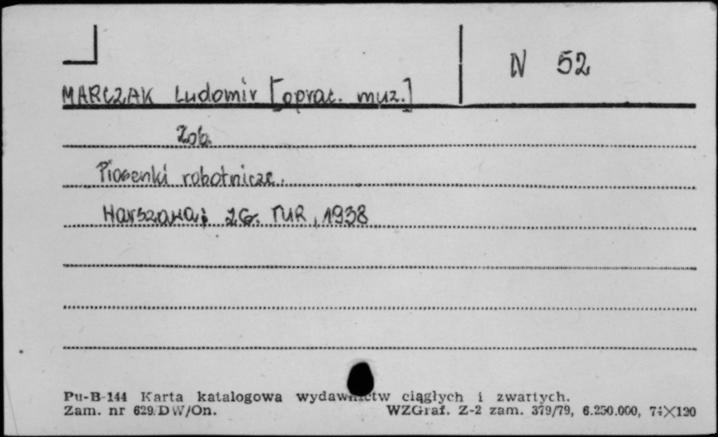 N 52
MARCZAK Ludomir [oprac. muz.]
Zob.
Piosenki robotnicze.
Warszawa; ZG. TUR, 1938
Pu-B-144 Karta katalogowa wydawnictw ciągłych i zwartych.
Zam. nr 629/DW/On. WZGraf. Z-2 zam. 379/79, 6.250.000, 74×120